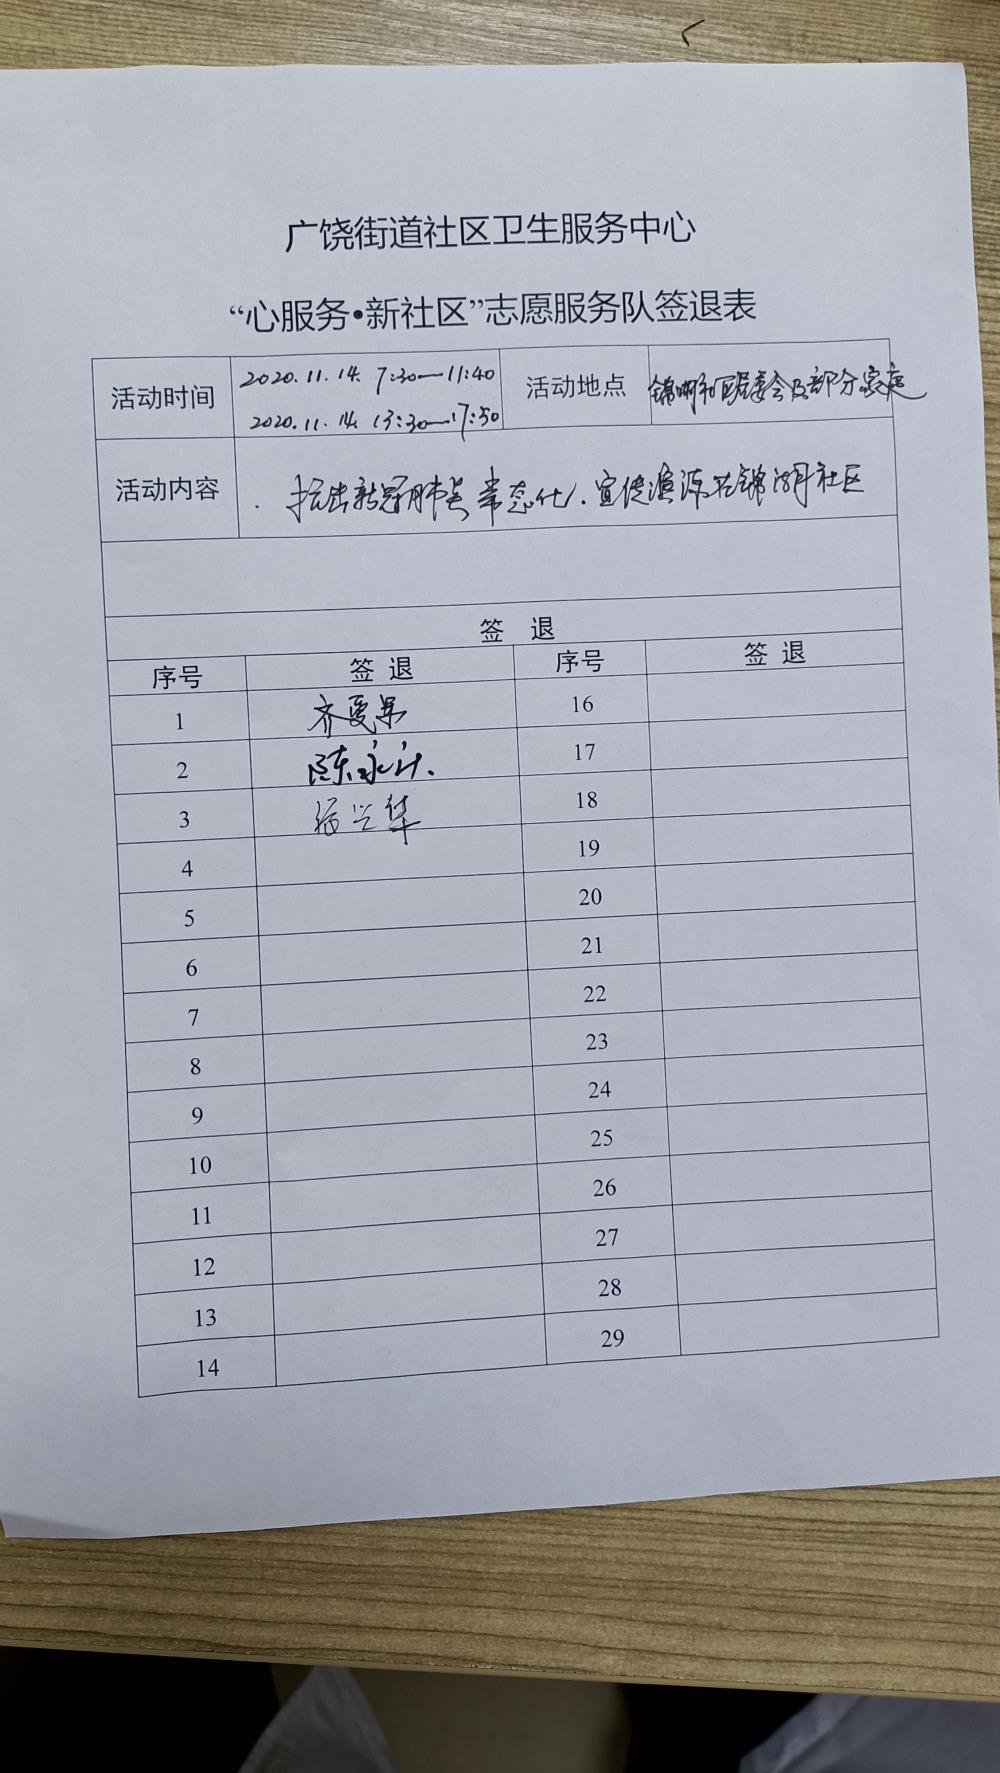 广饶街道社区卫生服务中心
“心服务•新社区”志愿服务队签退表
活动时间 2020.11.14. 7:30—11:40 活动地点 锦湖社区居委会及部分家庭
2020.11.14. 13:30—17:50
活动内容 抗击新冠肺炎常态化、宣传 锦湖社区
签 退
序号 签 退 序号 签 退
1 齐曼 16
2 陈永 17
3 兴华 18
4 19
5 20
6 21
7 22
8 23
9 24
10 25
11 26
12 27
13 28
14 29